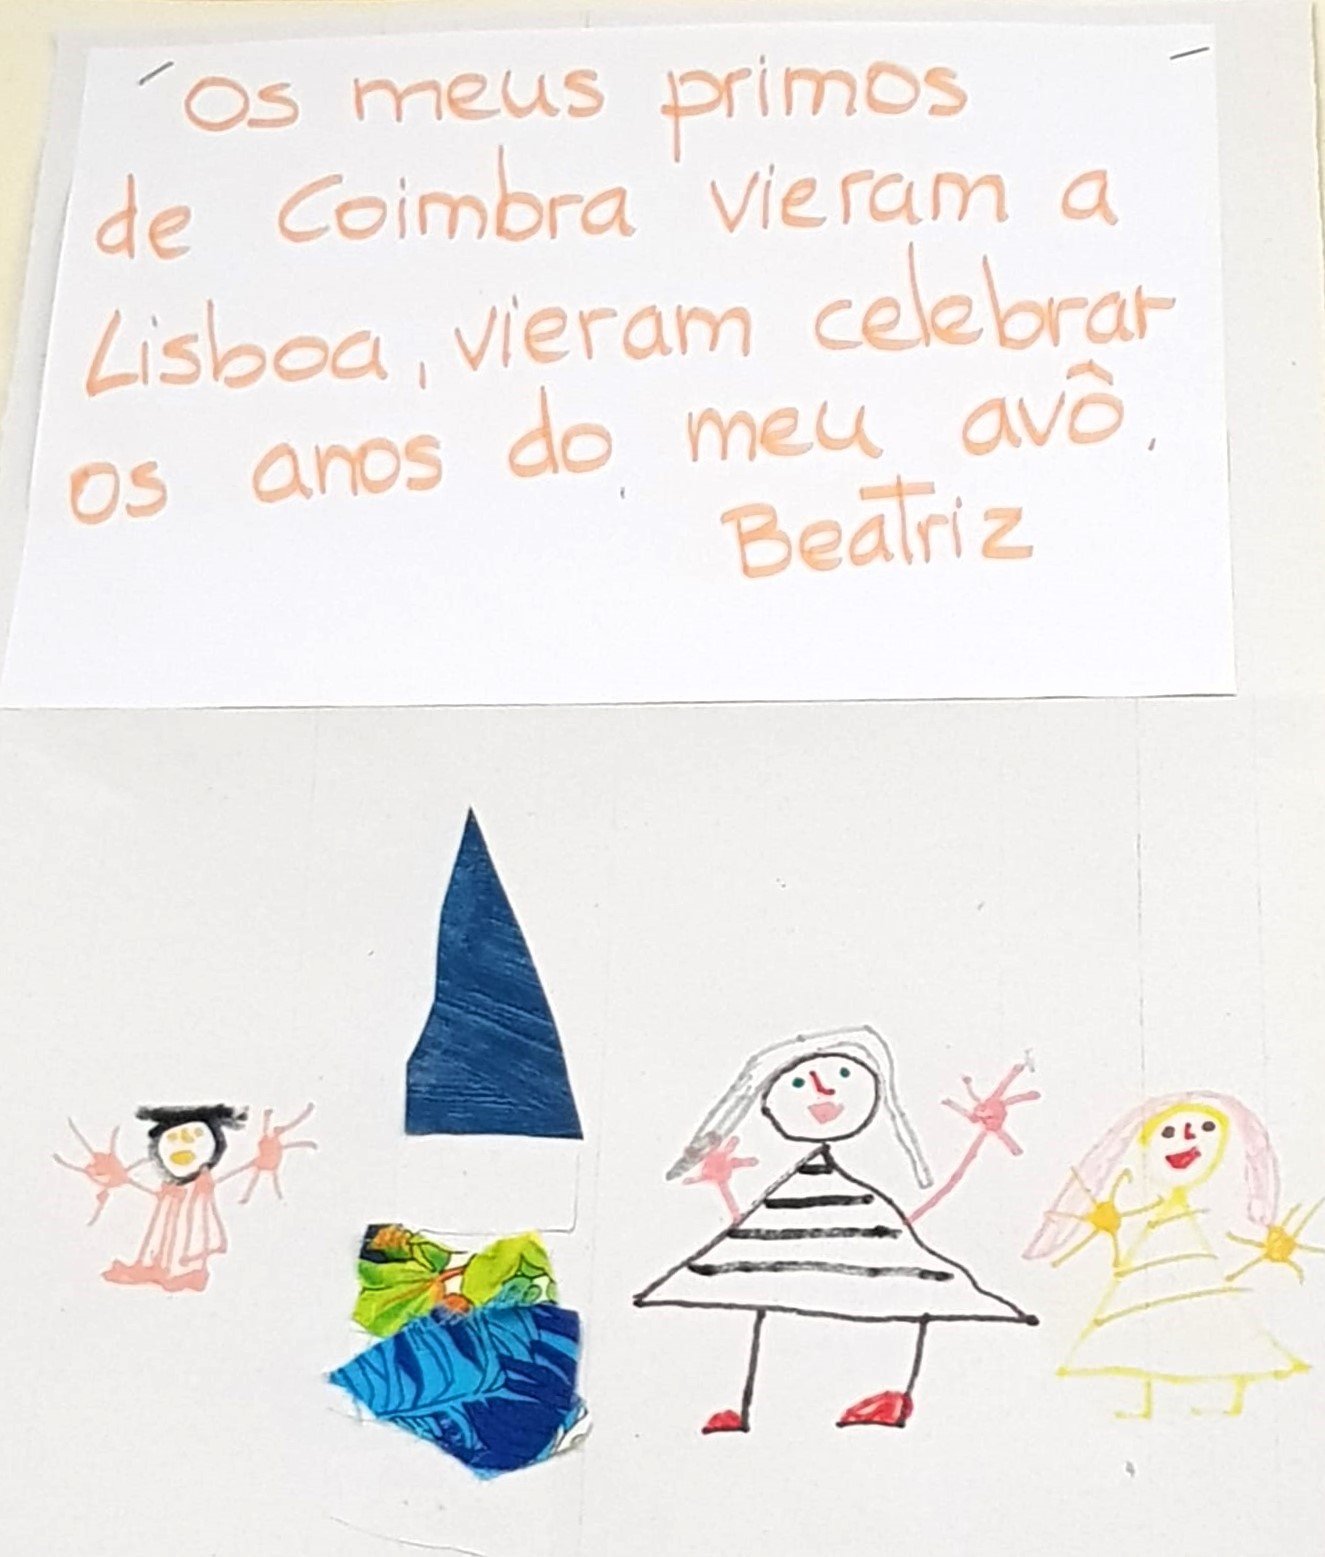 Os meus primos
de Coimbra vieram a
Lisboa, vieram celebrar
os anos do meu avô.
Beatriz